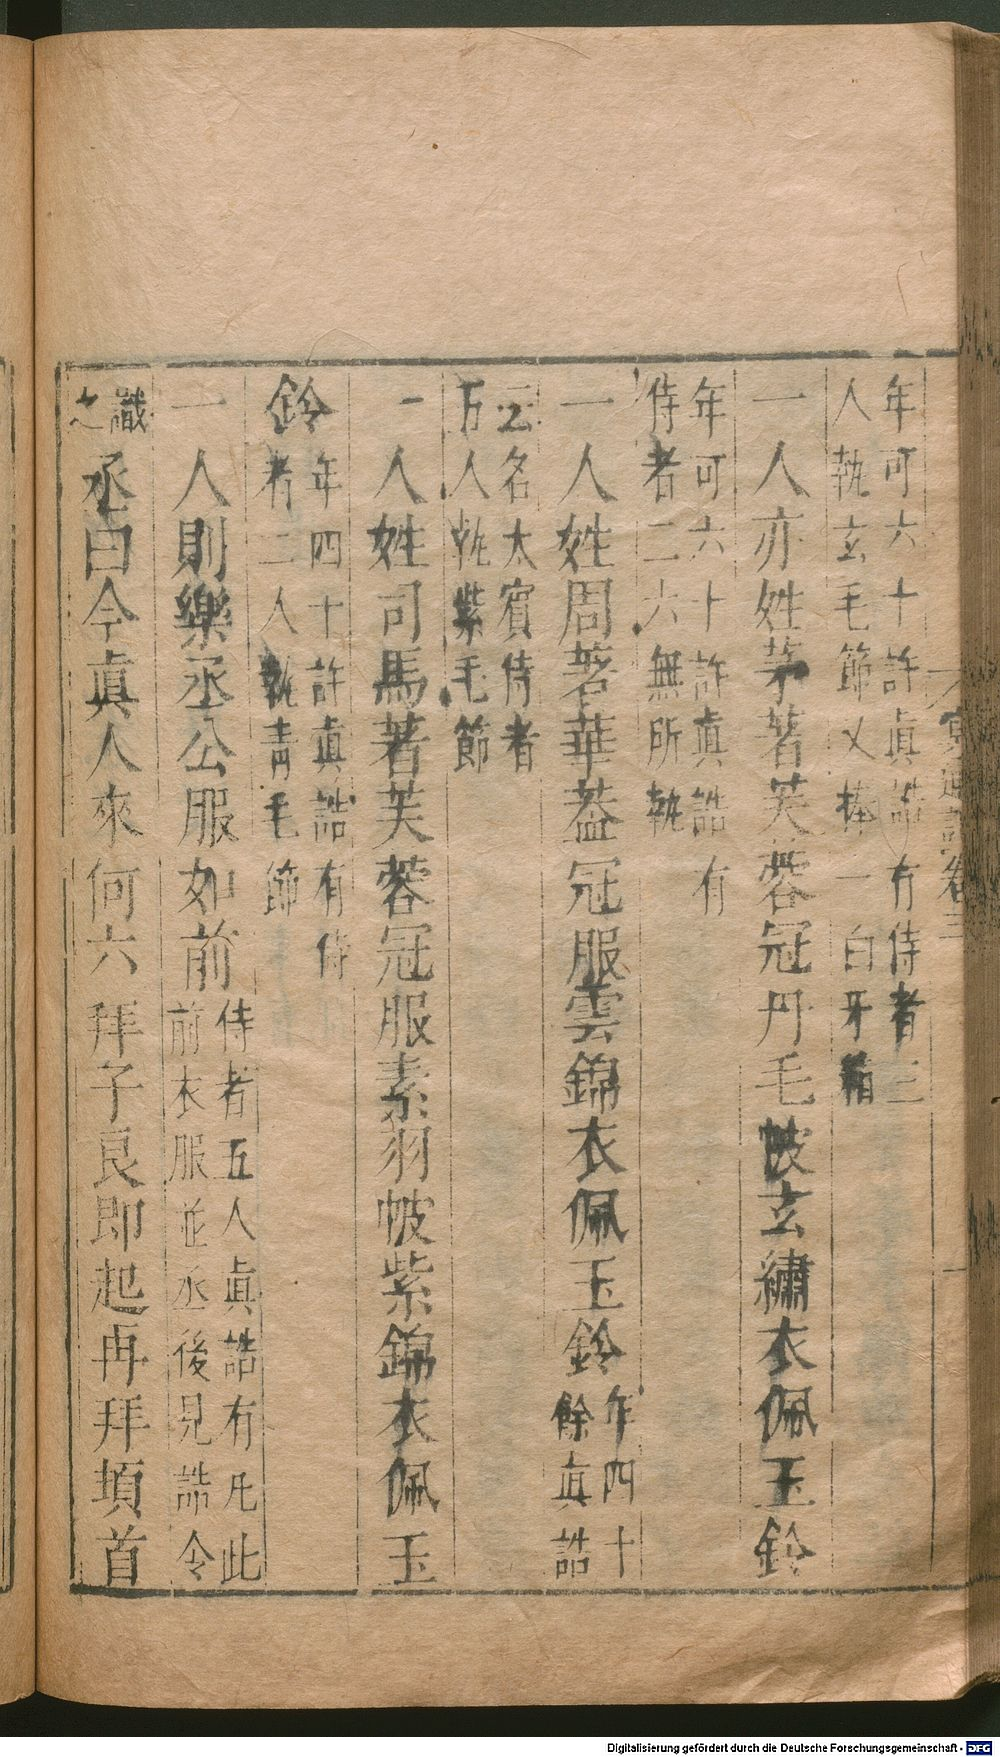 年可六十許眞誥有侍者三
人執玄毛節又捧一白牙箱
一人亦姓茅著芙蓉冠丹毛帔玄繡衣佩玉鈴
年可六十許眞誥有
侍者二六無所執
一人姓周著華葢冠服雲錦衣佩玉鈴
年四十
餘眞誥
云名太賓侍者
万人執紫毛節
一人姓司馬著芙蓉冠服素羽帔紫錦衣佩玉
鈴
年四十許眞誥有侍
者二人執青毛節
一人則樂丞公服如前
侍者五人眞誥有凡此
前衣服並丞後見誥令
識
之
丞曰今眞人來何六拜子良即起再拜頊首
冥通記卷三
Digitalisierung gefördert durch die Deutsche Forschungsgemeinschaft - DFG